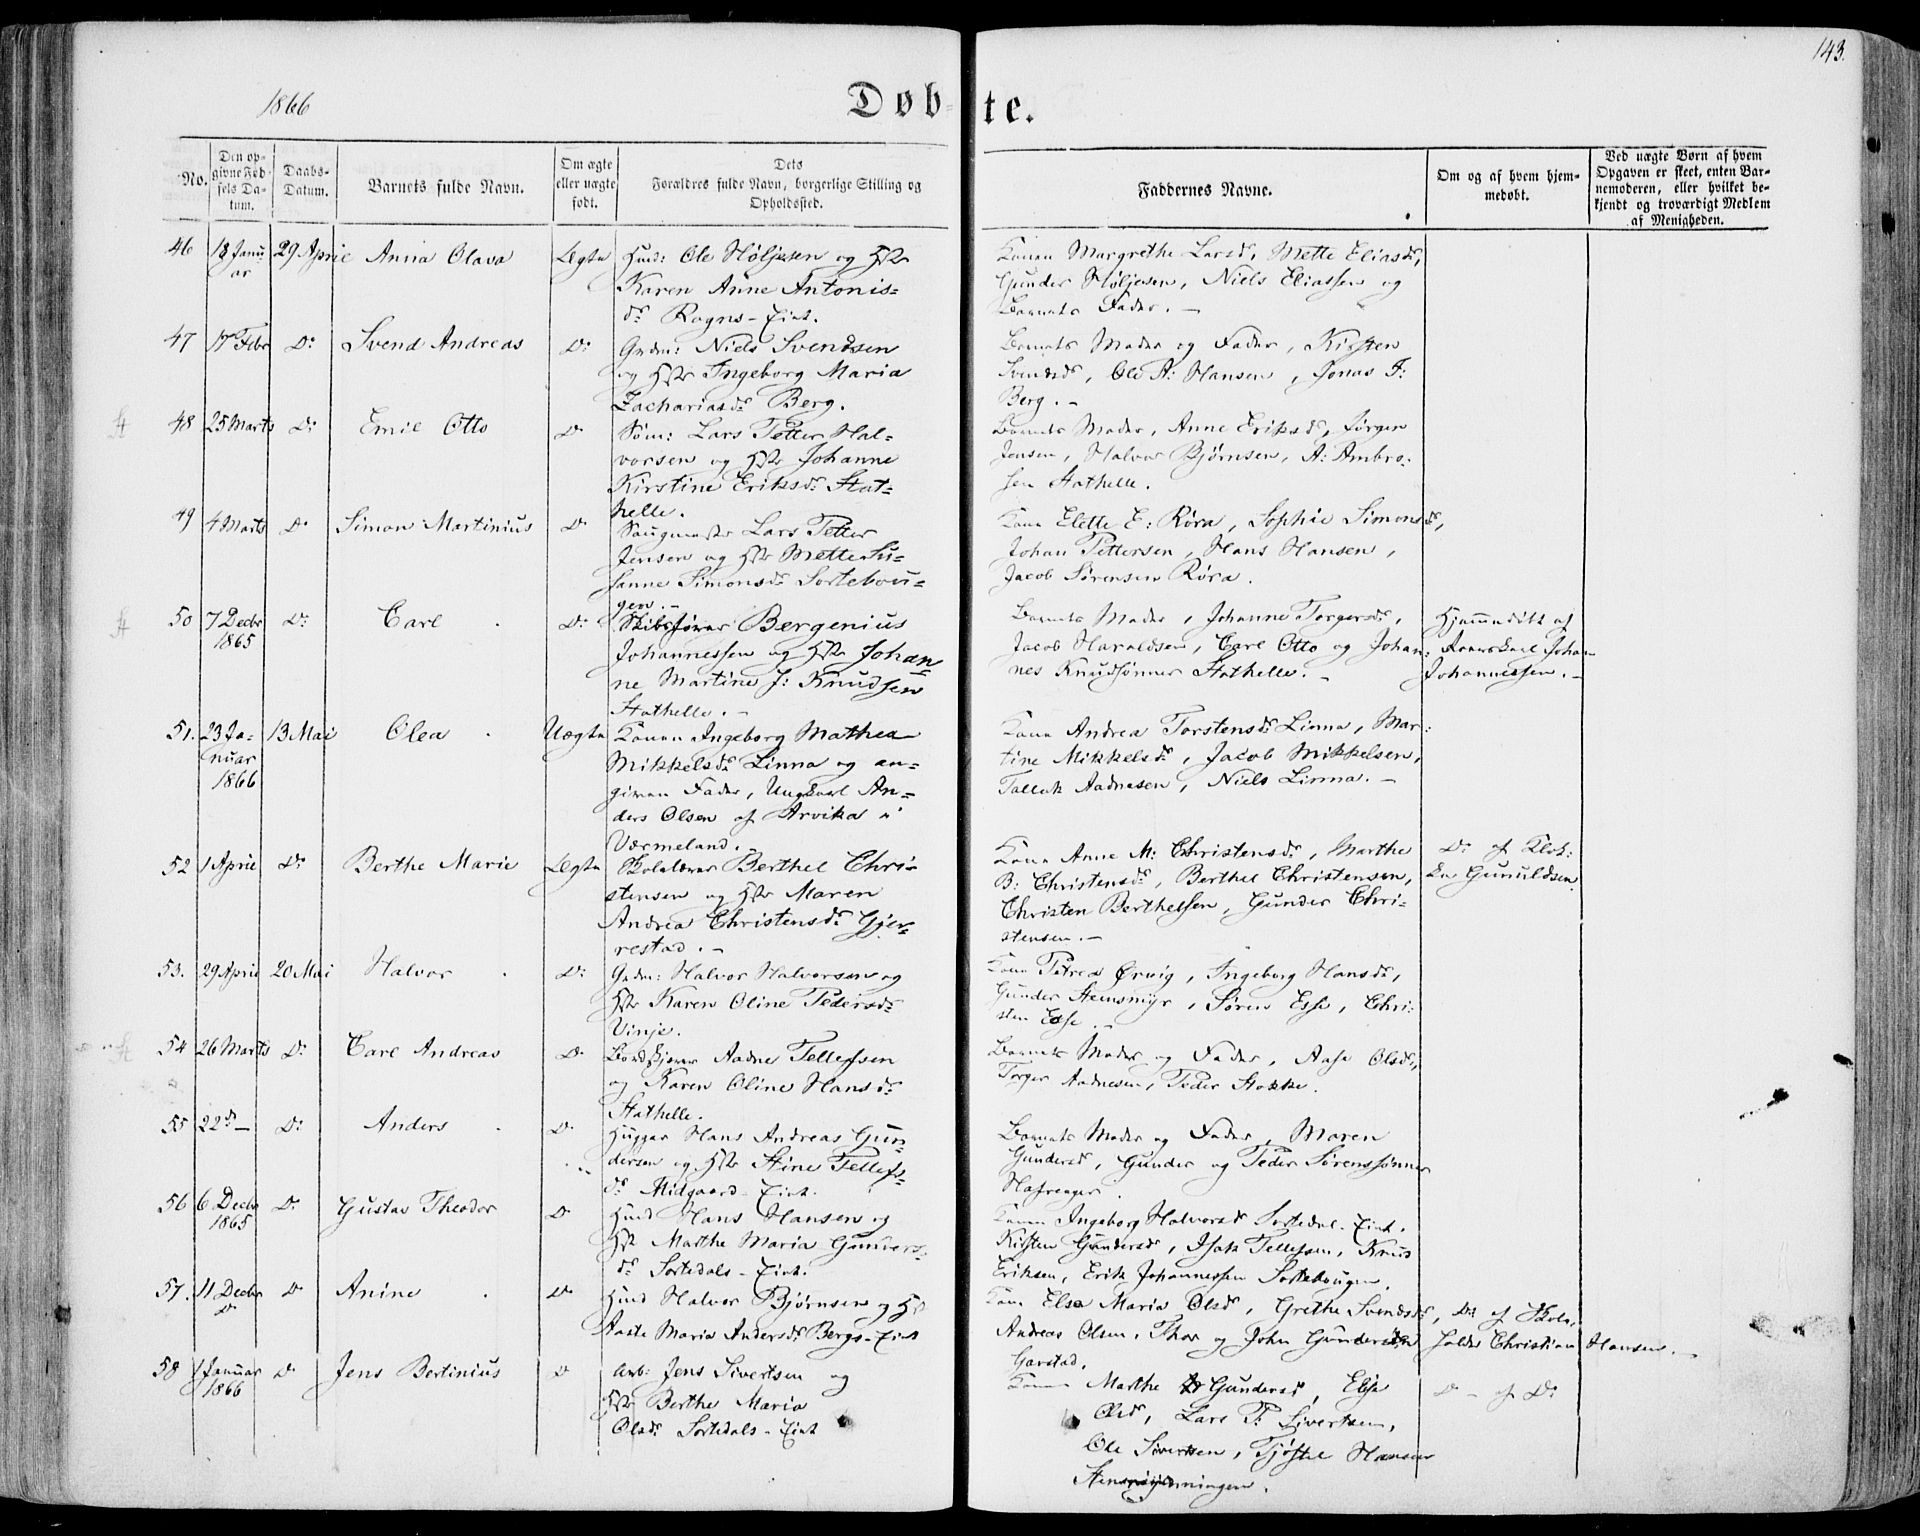 143.
1866
Døbte.
No.
Den opgivne Fødsels Datum.
Daabs-Datum.
Barnets fulde Navn.
Om ægte eller uægte født.
Dets Forældres fulde Navn, borgerlige Stilling og Opholdssted.
Faddernes Navne.
Om og af hvem hjemmedøbt.
Ved uægte Børn af hvem Opgaven er skeet, enten Barnemoderen, eller hvilket bekjendt og troværdigt Medlem af Menigheden.
46 18 Januar 29 April Anna Olava Ægte Husd: Ole Höljesen og Hstr
Karen Anne Antonis-
dr Rogns-Eiet.
Konen Margrethe Larsd, Mette Eliasdr,
Gunder Höljesen, Niels Eliassen og
Barnets Fader. -
47 17 Febr Do Svend Andreas Do Grdm: Niels Svendsen
og Hstr Ingeborg Maria
Zachariasdr Berg.
Barnets Moder og Fader, Kirsten
Svendsd, Ole A: Hansen, Jonas I:
Berg. -
48 25 Marts Do Emil Otto Do Söm: Lars Petter Hal-
vorsen og Hstr Johanne
Kirstine Eriksdr Stat-
helle.
Barnets Moder, Anne Eriksd, Jørgen
Jensen, Halvor Bjørnsen, A: Ambro-
sen Stathelle.
49 4 Marts Do Simon Martinius Do Saugmester Lars Petter
Jensen og Hstr Mette Su-
sanne Simonsdr Sortebou-
gen. -
Kone Elette E: Röra, Sophie Simonsd,
Johan Pettersen, Hans Hansen,
Jacob Sørensen Röra.
50 7 Decbr 1865 Do Carl Do Skibsfører Bergenius
Johannessen og Hstr Johan
ne Martine J: Knudsen
Stathelle. -
Barnets Moder, Johanne Torgersd,
Jacob Haraldsen, Carl Otto og Johan-
nes Knudsönner Stathelle. -
Hjemmedöbt af
Johan
Johannessen. -
51. 23 Januar 1866 13 Mai Olea Uægte Konen Ingeborg Mathea
Mikkelsdr Linna og an-
given Fader, Ungkarl An-
ders Olsen af Arvika i
Værmeland. -
Kone Andrea Torstensdr Linna, Mar-
tine Mikkelsdr, Jacob Mikkelsen,
Tallak Aadnesen, Niels Linna. -
52 1 April Do Berthe Marie Ægte Berthel Chri-
stensen og Hstr Maren
Andrea Christensdr Gjer-
restad. -
Kone Anne M: Christensdr, Marthe
B: Christensdr, Berthel Christensen,
Christen Berthelsen, Gunder Chri-
stensen. -
Do af Klok-
Gunuldsen
53. 29 April 20 Mai Halvor Do Grdm: Halvor Halvorsen og
Hstr Karen Oline Pedersdr
Vinje.
Kone Petrea Ørvig, Ingeborg Hansdr,
Gunder Stensmyr, Søren Esse, Chri-
sten Esse. -
54 26 Marts Do Carl Andreas Do Aadne Tellefsen
og Karen Oline Hansdr
Stathelle.
Barnets Moder og Fader, Aase Olsd,
Torger Aadnesen, Peder Stokke.
55 22d - Do Anders Do Huggar Hans Andreas Gun
dersen og Hstr Stine Tellefs
dr Midgaard-Eiet.
Barnets Moder og Fader, Maren
Gundersd, Gunder og Peder Sørenssönner
Hafsenger.
56 6 Decbr 1865 Do Gustav Theodor Do Husd Hans Hansen og
Hstr Marthe Maria Gunders-
dr Sortedals-Eiet.
Konen Ingeborg Halvorsd Sortedal-Eiet.
Kirsten Gundersd, Isak Tellefsen, Knud
Eriksen, Erik Johannessen Sortebougen.
57. 11 Decbr Do Do Anine Do Husd Halvor Bjørnsen og H
Aaste Maria Andersdr Bergs-Eiet
Kone Else Maria Olsd, Grethe Svendsd,
Andreas Olsen, Thor og John Gundersen
Garstad.
Do af Skole-
holder Christian Hansen. -
58 1 Januar 1866 Do Jens Bertinius Do Arb: Jens Sivertsen og
Hstr Berthe Maria
Olsdr Sortedals-Eiet
Konen Marthe Gundersd, Else
Olsd, Lars P: Sivertsen,
Ole Sivertsen, Tjöstel Hansen
Do - af Do